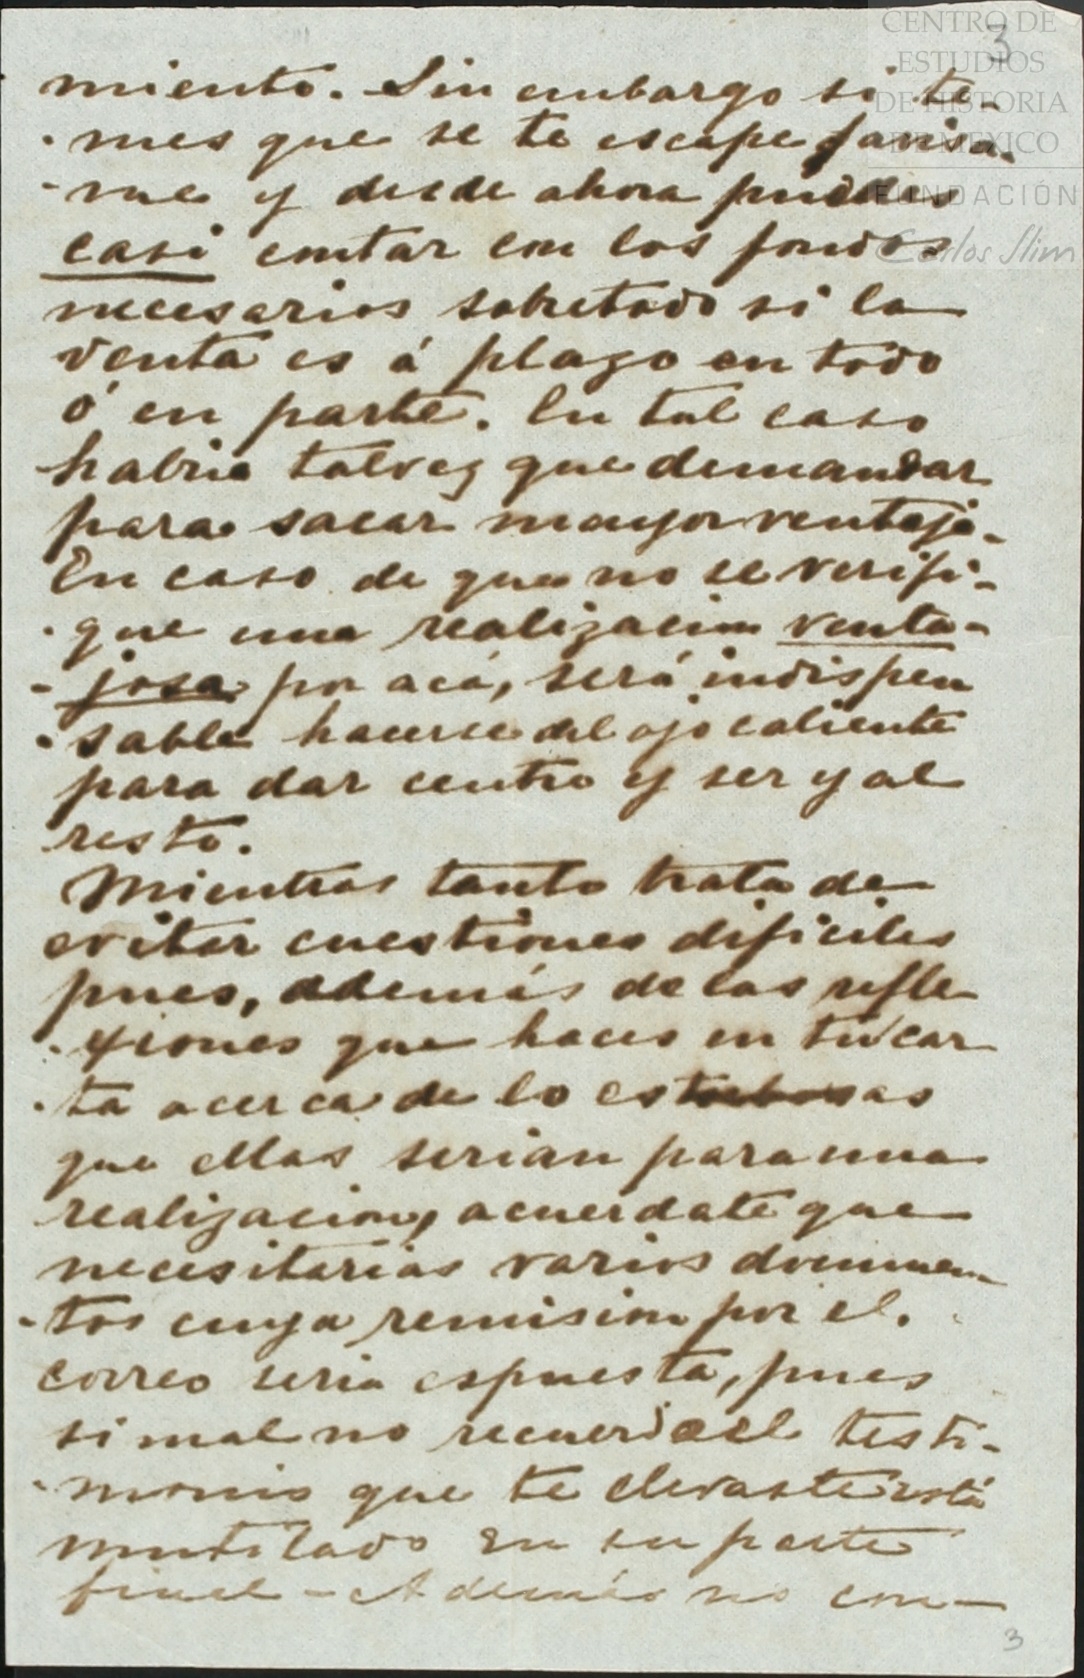 CENTRO DE
ESTUDIOS
DE HISTORIA
DE MEXICO
FUNDACIÓN
Carlos Slim
3
miento. Sin embargo si te-
-mes que se te escape avisa-
-me y desde ahora puedes
casi contar con los fondos
necesarios sobretodo si la
venta es á plazo en todo
ó en parte. En tal caso
habria talvez que demandar
para sacar mayor ventaja.
En caso de que no se verifi-
-que una realizacion venta-
-josa por acá, será indispen
-sable hacerse del ojo caliente
para dar centro y ser y al
resto.
Mientras tanto trata de
evitar cuestiones dificiles
pues, además de las refle
-xiones que haces en tu car
-ta acerca de lo as
que ellas serian para una
realizacion, acuerdate que
necesitarias varios documen-
-tos cuya remision por el
correo seria espuesta, pues
si mal no recuerdo el testi-
-monio que te llevaste está
mutilado en su parte
final - Además no con-
3